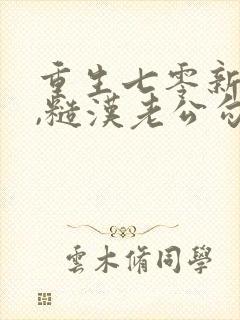 重生七零新
,糙漢老公
雲木脩同學